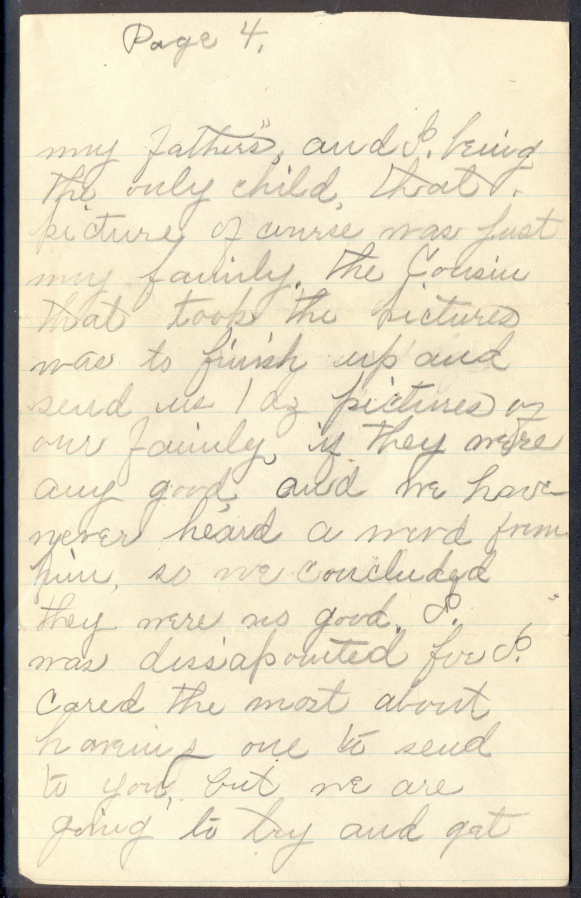 Page 4.
my father's", and I. being
the only child, that.
picture, of course was just
my family. The Cousin
that took the pictures
was to finish up and
send us 1 dz pictures of
our family, if they were
any good, and we have
never heard a word from
him, so we concluded
they were no good. I.
was dissapointed for I.
cared the most about
haveing one to send
to you, but we are
going to try and get